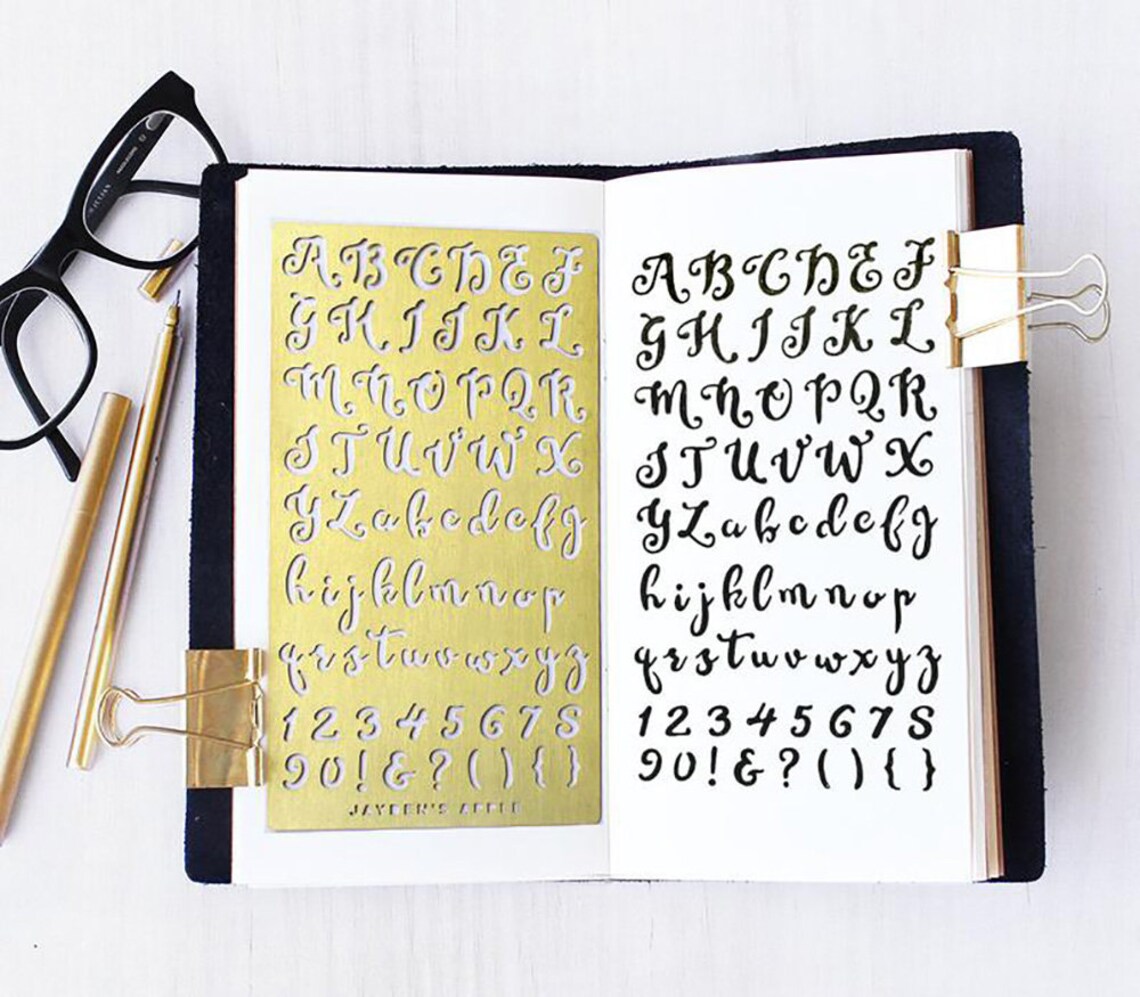 A B C D E F
G H I J K L
M N O P Q R
S T U V W X
Y Z a b c d e f g
h i j k l m n o p
q r s t u v w x y z
1 2 3 4 5 6 7 8
9 0 ! & ? ( ) { }
JAYDEN'S APPLE
A B C D E F
G H I J K L
M N O P Q R
S T U V W X
Y Z a b c d e f g
h i j k l m n o p
q r s t u v w x y z
1 2 3 4 5 6 7 8
9 0 ! & ? ( ) { }